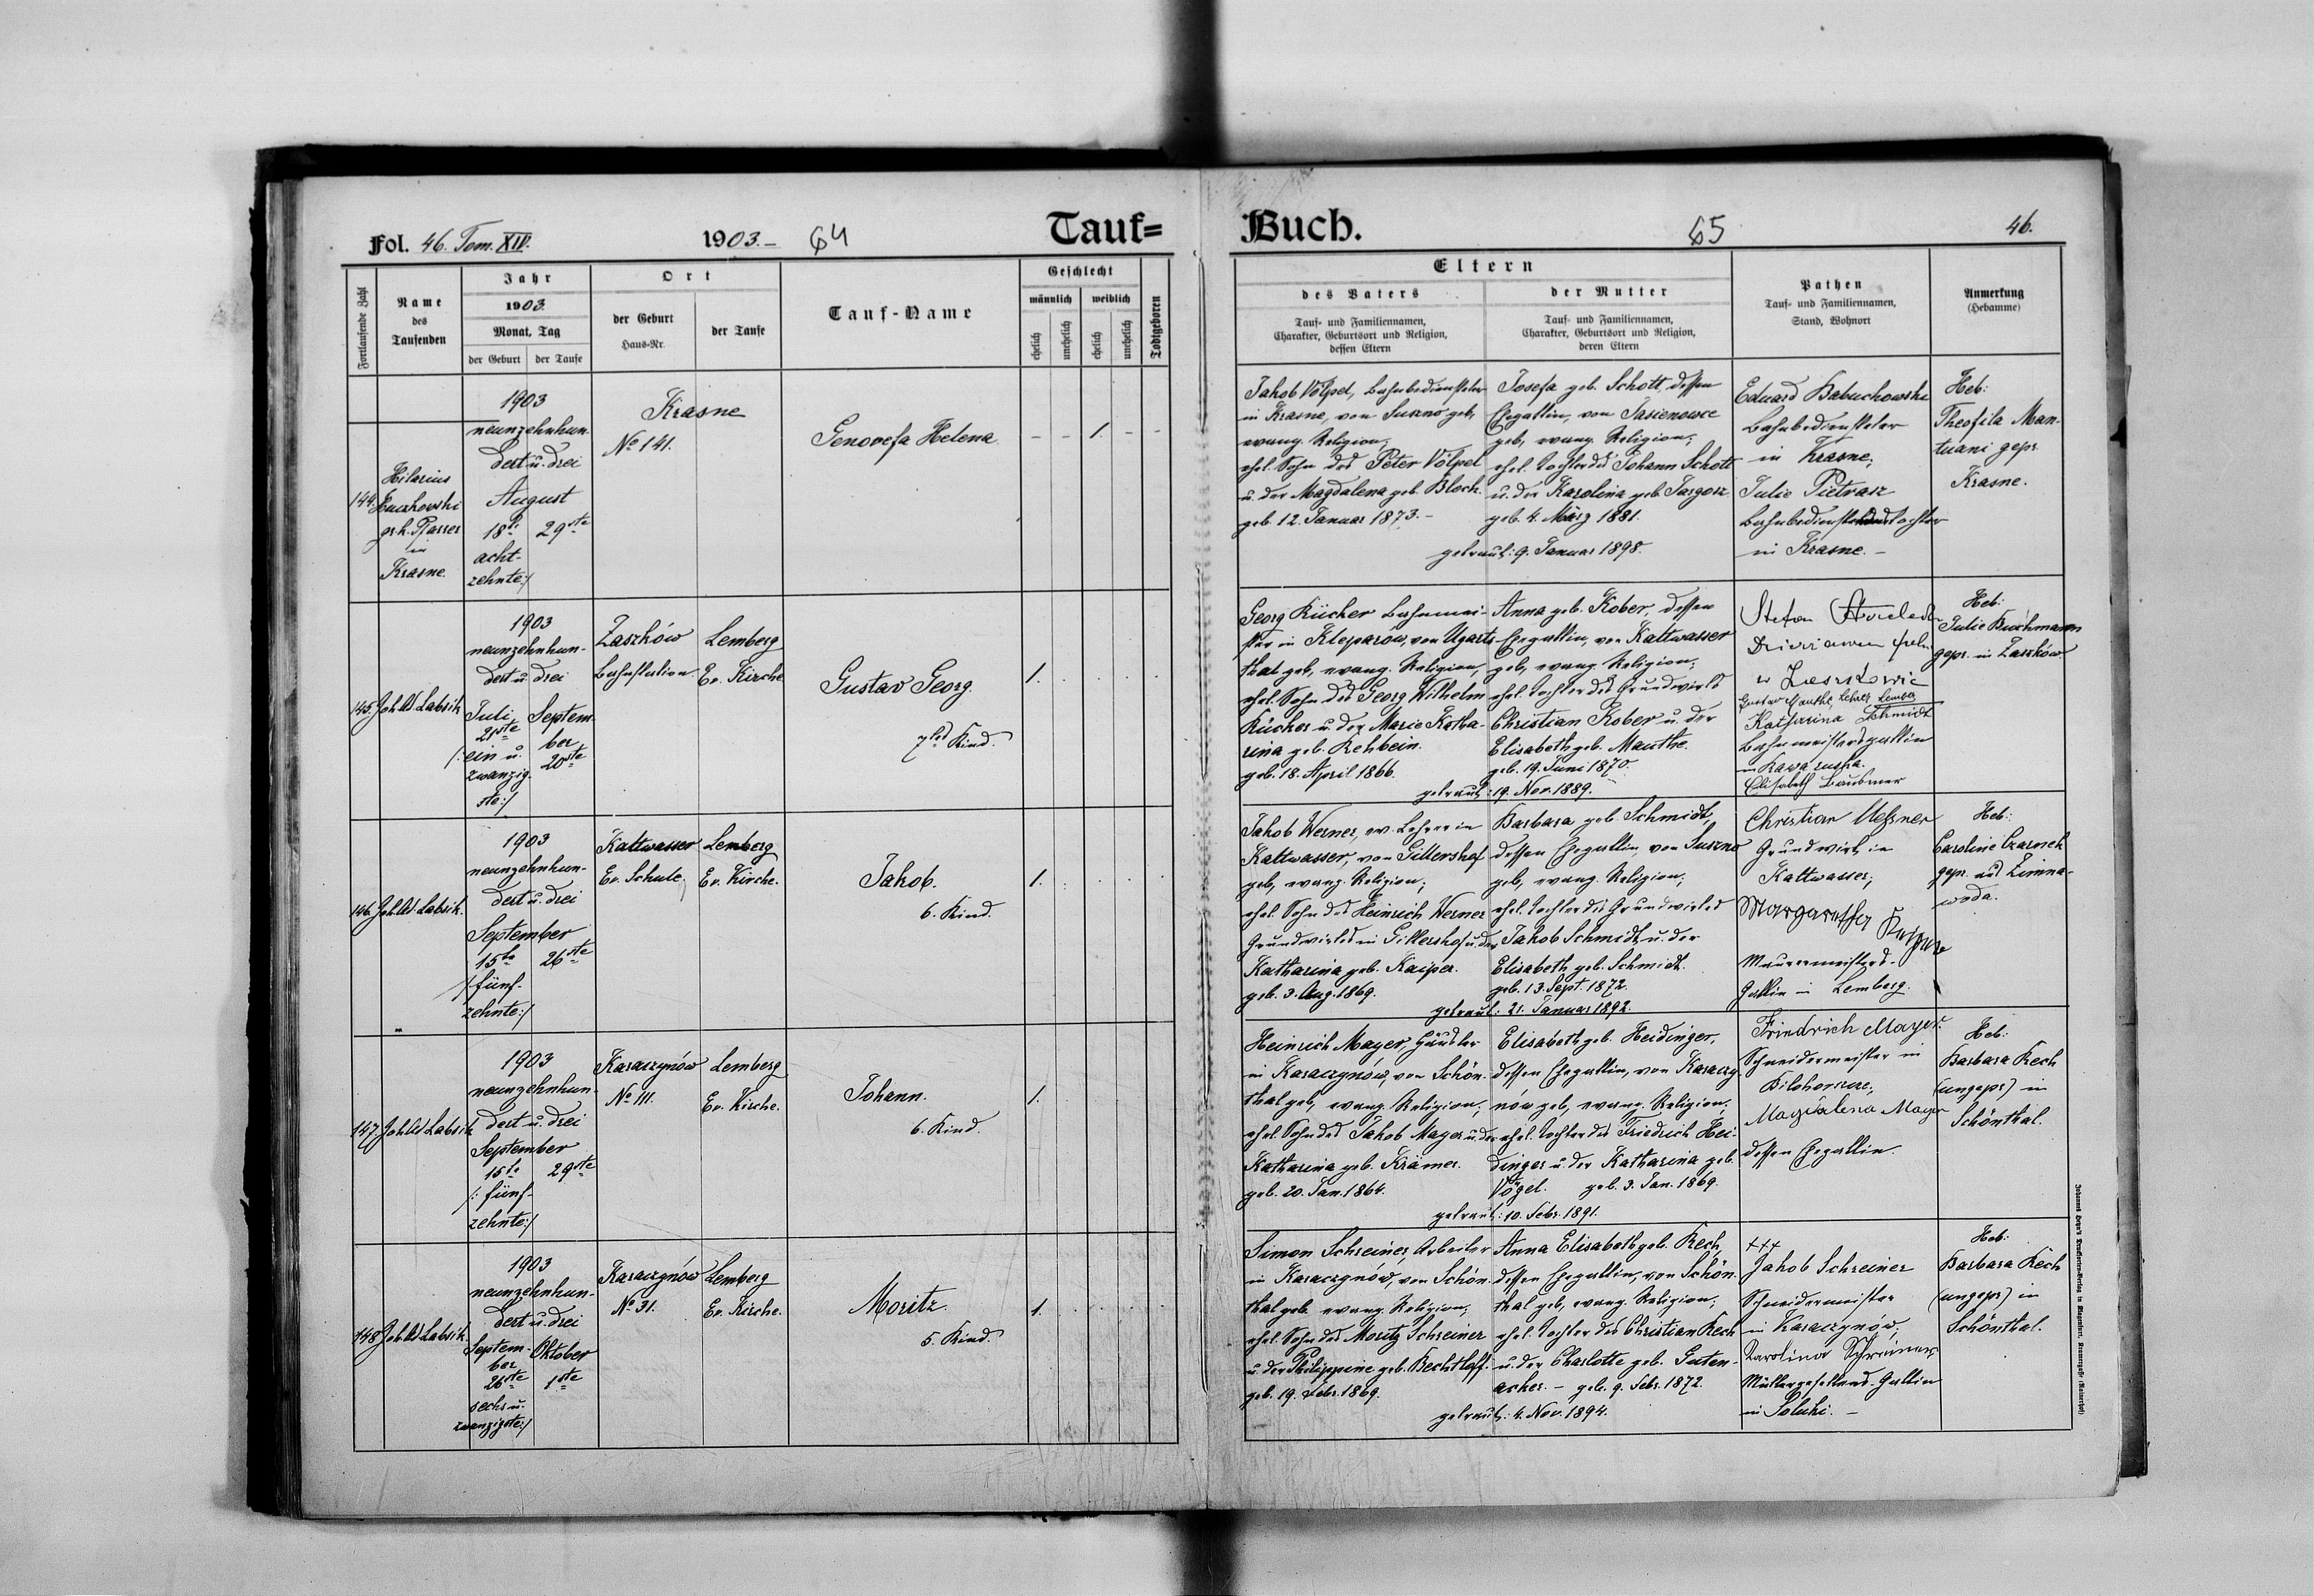 Fol. 46. Tom. XIV.
1903.– 64
Tauf=
Buch.
65
46.
Fortlaufende Zahl
Name des Taufenden
Jahr
1903.
Monat, Tag
der Geburt
der Taufe
Ort
der Geburt
Haus-Nr.
der Taufe
Tauf-Name
Geschlecht
männlich
weiblich
ehelich
unehelich
ehelich
unehelich
Todtgeboren
Eltern
des Vaters
Tauf- und Familiennamen,
Charakter, Geburtsort und Religion,
dessen Eltern
der Mutter
Tauf- und Familiennamen,
Charakter, Geburtsort und Religion,
deren Eltern
Pathen
Tauf- und Familiennamen,
Stand, Wohnort
Anmerkung
(Hebamme)
144.
Hilarius
gr. k. Pfarrer
in
Krasne.
1903
neunzehnhun-
dert u. drei
August
18te 29ste
acht-
zehnte:/
Krasne
No 141.
Genovefa Helena.
– – 1. – –
Jakob Völpel, Bahnbediensteter
in Krasne, von Suszno geb,
evang. Religion;
ehel. Sohn des Peter Völpel
u. der Magdalena geb. Bloch.
geb. 12. Januar 1873.–
Josefa geb. Schott, dessen
Ehegattin, von Jasienowce
geb, evang. Religion;
ehel. Tochter des Johann Schott
u. der Karolina geb. Targosz.
geb. 4. März 1881.
getraut: 9. Januar 1898.
Eduard Babuchowski
Bahnbediensteter
in Krasne;
Julie Pietrasz
in Krasne.–
Heb:
Theofila Man-
tuani gepr.
Krasne.
145. Joh. Ad. Labsik
1903
neunzehnhun-
dert u. drei
Juli Septem-
21ste ber
/:ein u. 20ste
zwanzig-
ste:/
Zaszków
Bahnstation.
Lemberg
Ev. Kirche
Gustav Georg.
7tes Kind.
1.
Georg Kücher Bahnmei-
ster in Kleparow, von Ugarts-
thal geb, evang. Religion,
ehel. Sohn des Georg Wilhelm
Kücher u. der Marie Katha-
rina geb. Rehbein.
geb. 18. April 1866.
Anna geb. Kober, dessen
Ehegattin, von Kaltwasser
geb, evang. Religion;
ehel. Tochter des Grundwirts
Christian Kober u. der
Elisabeth geb. Mauthe.
geb. 19. Juni 1870.
getraut: 19. Nov. 1889.
Stefan
w
Gustav Mauthe, Lehrer, Lemberg
Katharina Schmidt
Bahnmeistersgattin
in Rawa ruska.
Elisabeth
Heb:
Julie Buchmann
gepr. in Zaszków
146. Joh. Ad. Labsik.
1903
neunzehnhun-
dert u. drei
September
15te 26ste
/:fünf-
zehnte:/
Kaltwasser
Ev. Schule.
Lemberg
Ev. Kirche.
Jakob.
6. Kind.
1.
Jakob Werner, ev. Lehrer in
Kaltwasser, von Gillershof
geb, evang. Religion;
ehel. Sohn des Heinrich Werner
Grundwirtes in Gillershof u. der
Katharina geb. Kaiper.
geb. 3. Aug. 1869.
Barbara geb. Schmidt,
dessen Ehegattin, von Suszno
geb, evang. Religion;
ehel. Tochter des Grundwirtes
Jakob Schmidt u. der
Elisabeth geb. Schmidt.
geb. 13. Sept. 1872.
getraut: 21. Januar 1892.
Christian Meßner
Grundwirt in
Kaltwasser;
Margaretha
Maurermeisters-
Gattin in Lemberg.
Heb:
Caroline Czarnek
gepr. aus Zimna-
woda.
147. Joh. Ad. Labsik
1903
neunzehnhun-
dert u. drei
September
15te 29ste
/:fünf-
zehnte:/
Karaczynów
No 111.
Lemberg
Ev. Kirche.
Johann.
6. Kind.
1.
Heinrich Mayer, Häusler
in Karaczynów, von Schön-
thal geb, evang. Religion;
ehel. Sohn des Jakob Mayer u. der
Katharina geb. Krämer.
geb. 20. Jan. 1864.
Elisabeth geb. Heidinger,
dessen Ehegattin, von Karaczy-
nów geb, evang. Religion;
ehel. Tochter des Friedrich Hei-
dinger u. der Katharina geb.
Vogel. geb. 3. Jan. 1869.
getraut: 10. Febr. 1891.
Friedrich Mayer.
Schneidermeister in
Magdalena Mayer
dessen Ehegattin.
Heb:
Barbara Rech
(ungepr) in
Schönthal.
148 Joh. Ad. Labsik.
1903
neunzehnhun-
dert u. drei
Septem- Oktober
ber
26ste 1ste
sechs u.
zwanzigste:/
Karaczynów
No 31.
Lemberg
Ev. Kirche.
Moritz.
5. Kind.
1.
Simon Schreiner, Arbeiter
in Karaczynów, von Schön-
thal geb. evang. Religion;
ehel. Sohn des Moritz Schreiner
u. der Philippine geb. Bechtloff.
geb. 19. Febr. 1869.
Anna Elisabeth geb. Rech,
dessen Ehegattin, von Schön-
thal geb, evang. Religion;
ehel. Tochter des Christian Rech
u. der Charlotte geb. Guten-
acker.– geb. 9. Febr. 1872.
getraut: 4. Nov. 1894.
+++
Jakob Schreiner
Schneidermeister
in Karaczynow;
Karolina Schreiner,
Müllergesellens-Gattin
in Poluki.–
Heb:
Barbara Rech
(ungepr) in
Schönthal.